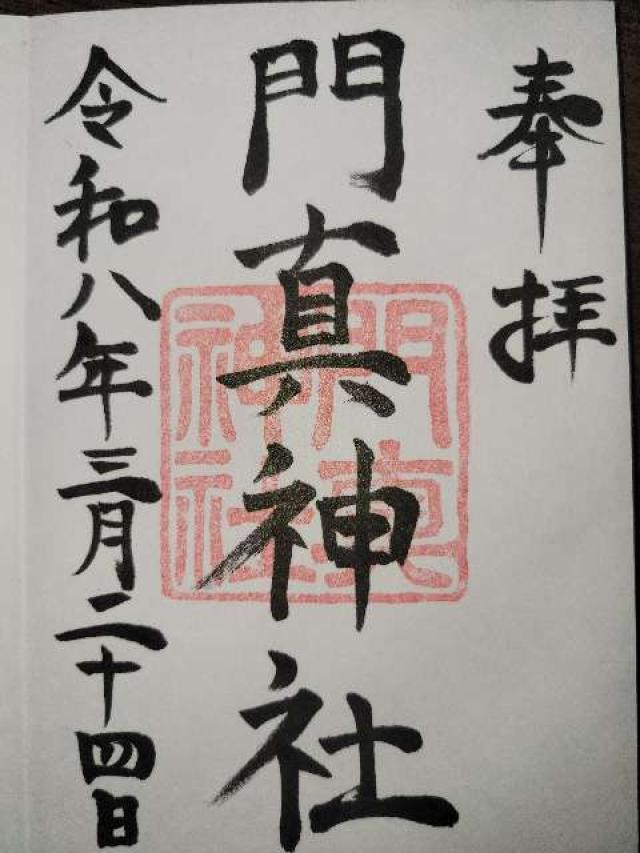 奉拝
門真神社
門真神社
令和八年三月二十四日